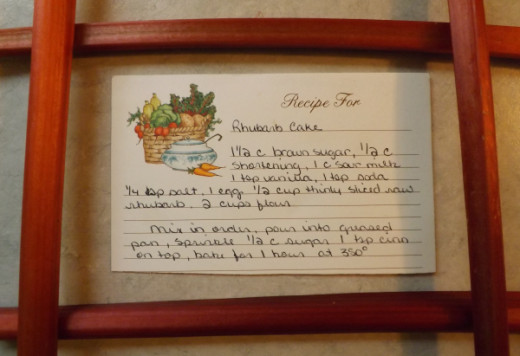 Recipe For
Rhubarb Cake
1 1/2 c brown sugar, 1/2 c
shortening, 1 c sour milk
1 tsp vanilla, 1 tsp soda
1/4 tsp salt, 1 egg, 1/2 cup thinly sliced raw
rhubarb, 2 cups flour
Mix in order, pour into greased
pan, sprinkle 1/2 c sugar 1 tsp cinn
on top, bake for 1 hour at 350°